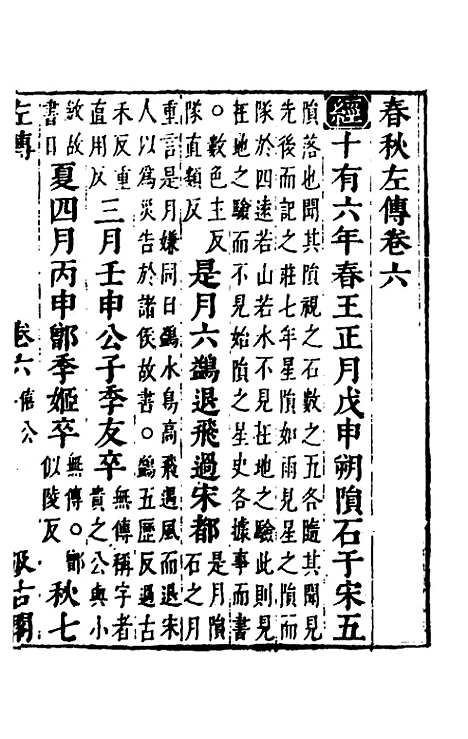 春秋左傳卷六
經十有六年春王正月戊申朔隕石于宋五
隕落也聞其隕視之石數之五各隨其聞見
先後而記之莊七年星隕如雨見星之隕而
隊於四遠若山若水不見在地之驗此則見
在地之驗而不見始隕之星史各據事而書
○數色主反
隊直類反
是月六鷁退飛過宋都
是月隕
石之月
重言是月嫌同日鷁水鳥高飛遇風而退宋
人以爲災告於諸侯故書○鷁五歷反過古
禾反重
直用反
三月壬申公子季友卒
無傳稱字者
貴之公與小
斂故
書日
夏四月丙申鄫季姬卒
無傳○鄫
似陵反
秋七
左傳 卷六 僖公 汲古閣